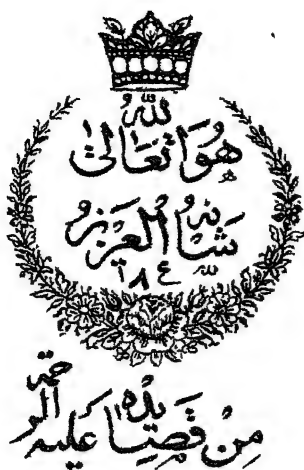 هُوَ اللّٰه تَعَالٰى
شَانُهُ الْعَزِيزُ
١٨٤
مِنْ قَصِيَايدِهِ عَلَيْهِ الرحمة